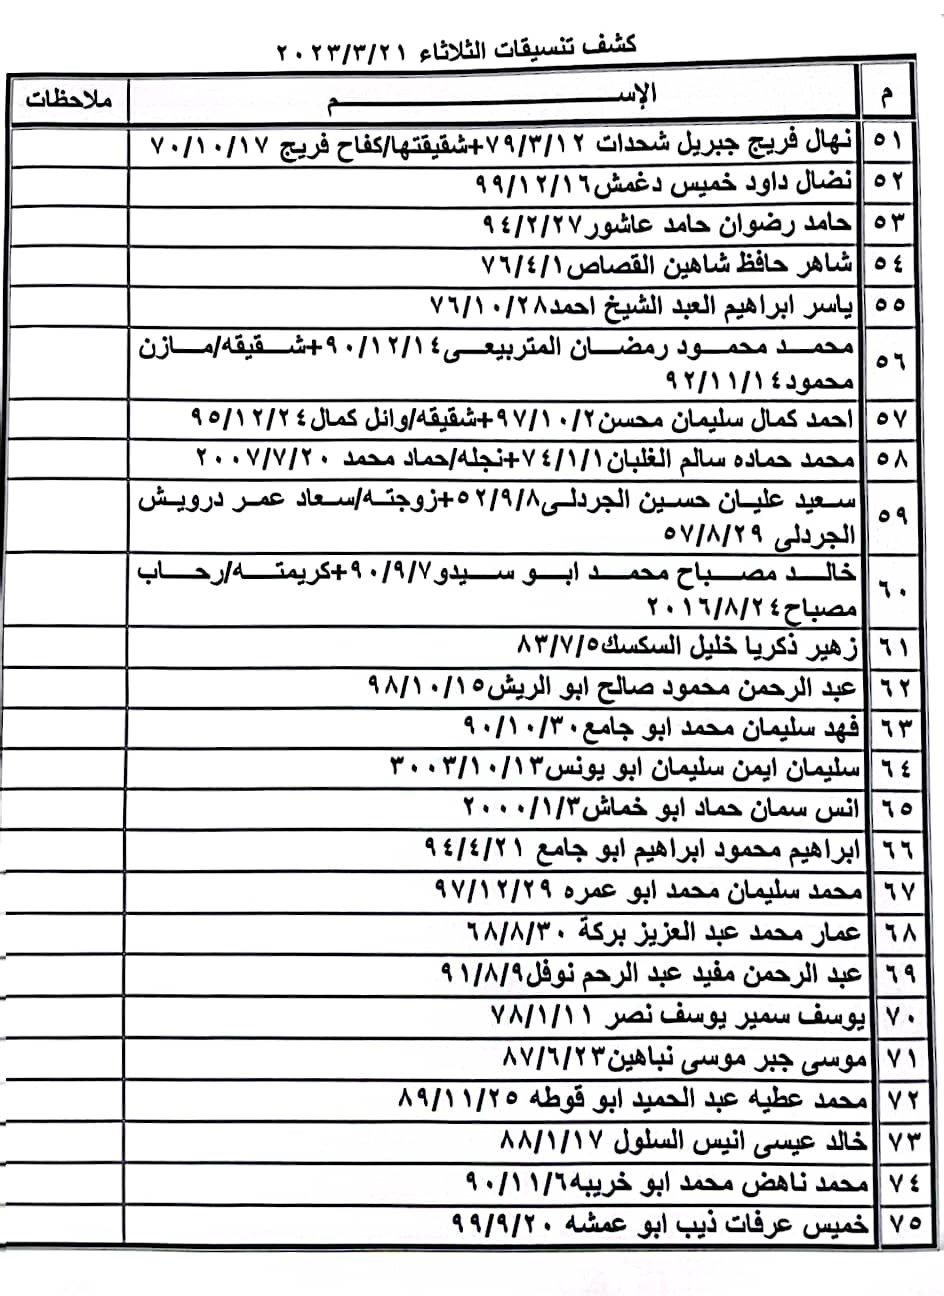 كشف تنسيقات الثلاثاء ٢٠٢٣/٣/٢١
م الإســـم ملاحظات
٥١ نهال فريج جبريل شحدات ٧٩/٣/١٢+شقيقتها/كفاح فريج ٧٠/١٠/١٧
٥٢ نضال داود خميس دغمش٩٩/١٢/١٦
٥٣ حامد رضوان حامد عاشور٩٤/٢/٢٧
٥٤ شاهر حافظ شاهين القصاص٧٦/٤/١
٥٥ ياسر ابراهيم العبد الشيخ احمد٧٦/١٠/٢٨
٥٦ محمد محمود رمضان المتربيعى٩٠/١٢/١٤+شقيقه/مازن
محمود٩٢/١١/١٤
٥٧ احمد كمال سليمان محسن٩٧/١٠/٢+شقيقه/وائل كمال٩٥/١٢/٢٤
٥٨ محمد حماده سالم الغلبان٧٤/١/١+نجله/حماد محمد ٢٠٠٧/٧/٢٠
٥٩ سعيد عليان حسين الجردلى٥٢/٩/٨+زوجته/سعاد عمر درويش
الجردلى ٥٧/٨/٢٩
٦٠ خالد مصباح محمد ابو سيدو٩٠/٩/٧+كريمته/رحاب
مصباح٢٠١٦/٨/٢٤
٦١ زهير ذكريا خليل السكسك٨٣/٧/٥
٦٢ عبد الرحمن محمود صالح ابو الريش٩٨/١٠/١٥
٦٣ فهد سليمان محمد ابو جامع٩٠/١٠/٣٠
٦٤ سليمان ايمن سليمان ابو يونس٣٠٠٣/١٠/١٣
٦٥ انس سمان حماد ابو خماش٢٠٠٠/١/٣
٦٦ ابراهيم محمود ابراهيم ابو جامع ٩٤/٤/٢١
٦٧ محمد سليمان محمد ابو عمره ٩٧/١٢/٢٩
٦٨ عمار محمد عبد العزيز بركة ٦٨/٨/٣٠
٦٩ عبد الرحمن مفيد عبد الرحم نوفل٩١/٨/٩
٧٠ يوسف سمير يوسف نصر ٧٨/١/١١
٧١ موسى جبر موسى نباهين٨٧/٦/٢٣
٧٢ محمد عطيه عبد الحميد ابو قوطه ٨٩/١١/٢٥
٧٣ خالد عيسى انيس السلول ٨٨/١/١٧
٧٤ محمد ناهض محمد ابو خريبه٩٠/١١/٦
٧٥ خميس عرفات ذيب ابو عمشه ٩٩/٩/٢٠